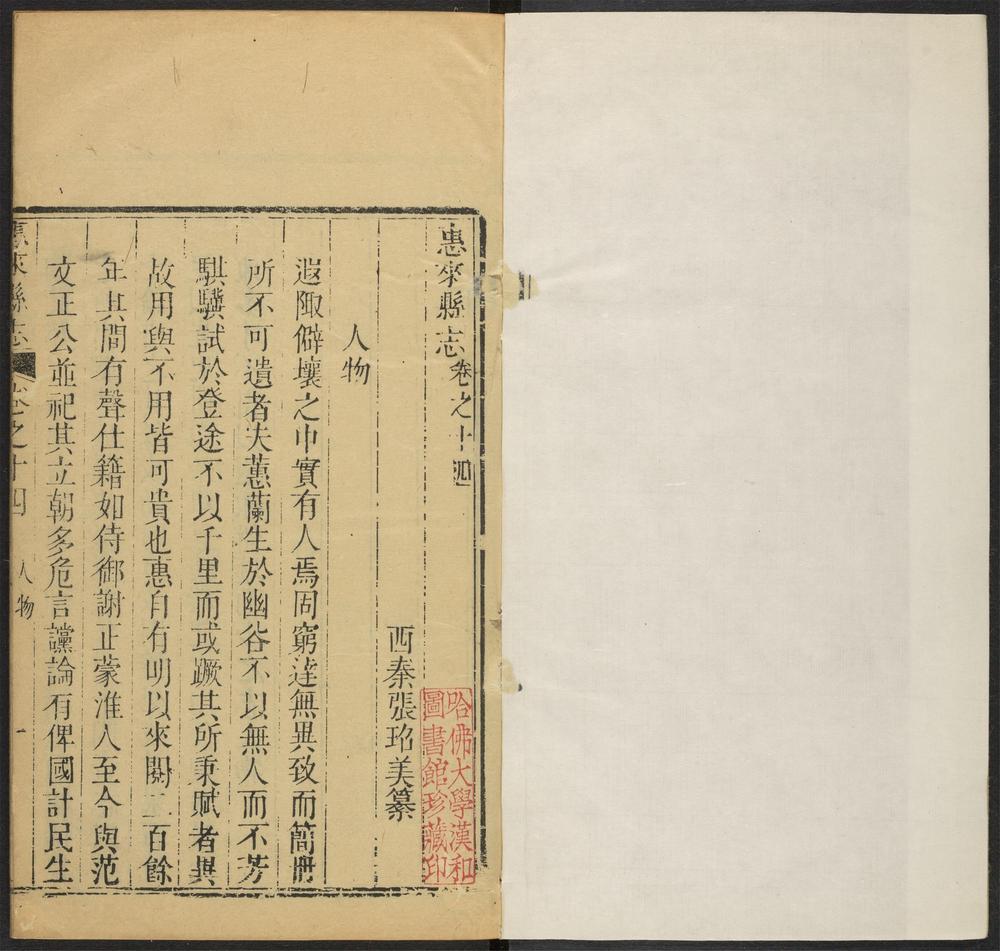 惠來縣志卷之十四
西秦張玿美纂
人物
遐陬僻壤之中實有人焉固窮達無異致而簡冊
所不可遺者夫蕙蘭生於幽谷不以無人而不芳
騏驥試於登途不以千里而或蹶其所秉賦者異
故用與不用皆可貴也惠自有明以來閱二百餘
年其間有聲仕籍如侍御謝正蒙淮人至今與范
文正公並祀其立朝多危言讜論有俾國計民生
惠來縣志 卷之十四 人物 一
哈佛大學漢和
圖書館珍藏印